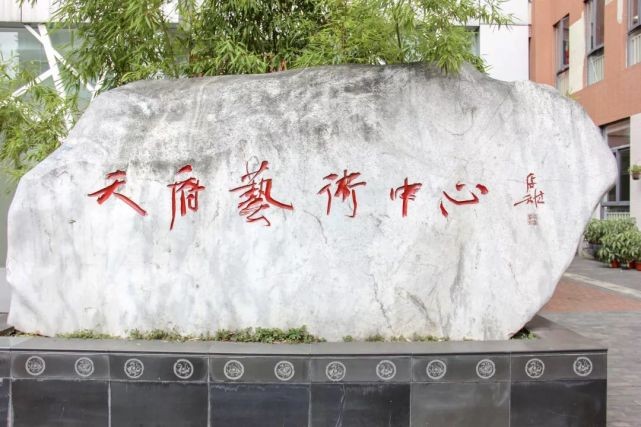 天府藝術中心